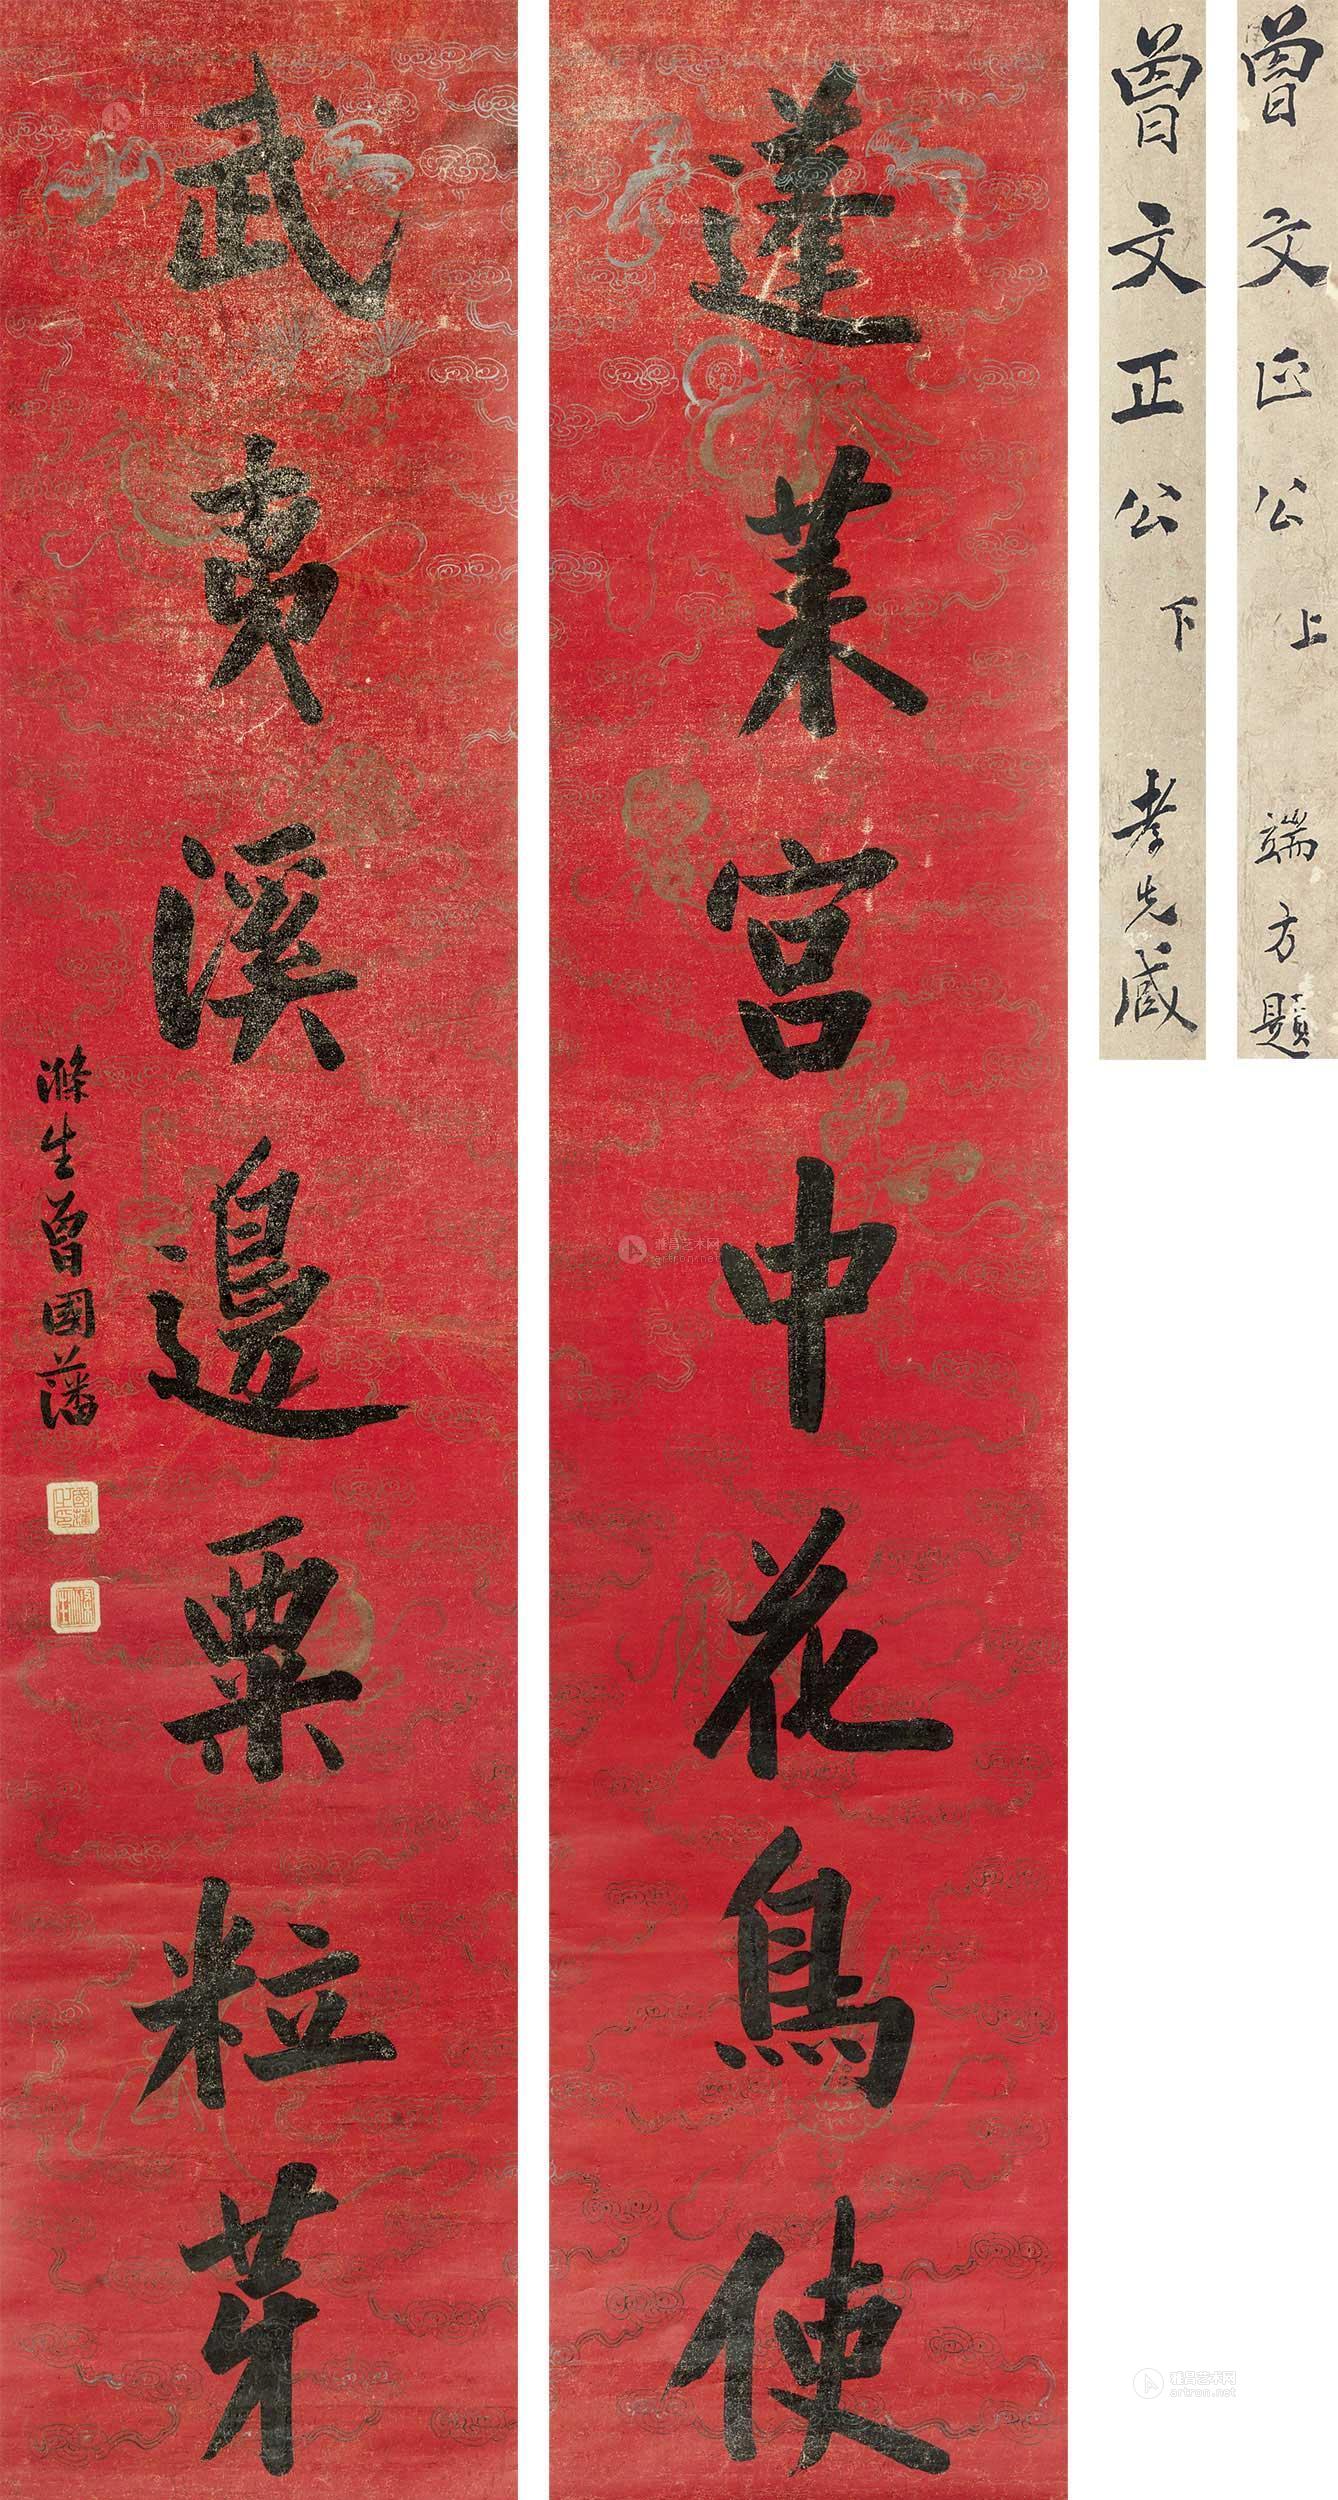 曾文正公 上 端方題
曾文正公 下 孝先藏
蓬莱宮中花鳥使
武夷溪邊粟粒芽
滌生曾國藩
國藩之印
雅昌艺术网
artron.net